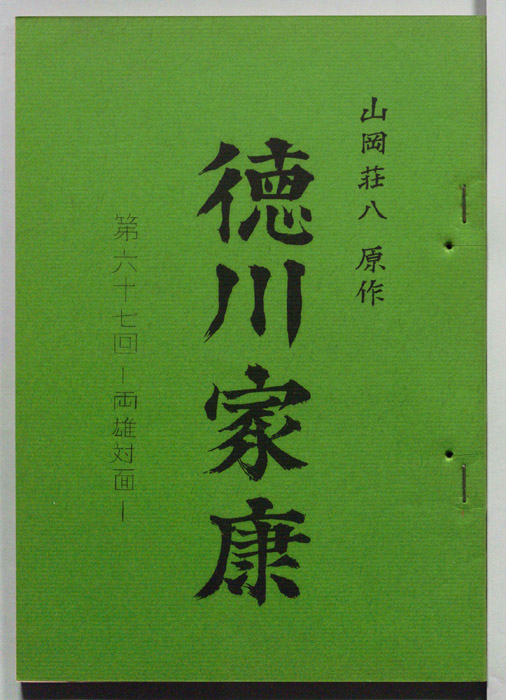 山岡荘八 原作
徳川家康
第六十七回ー両雄対面ー